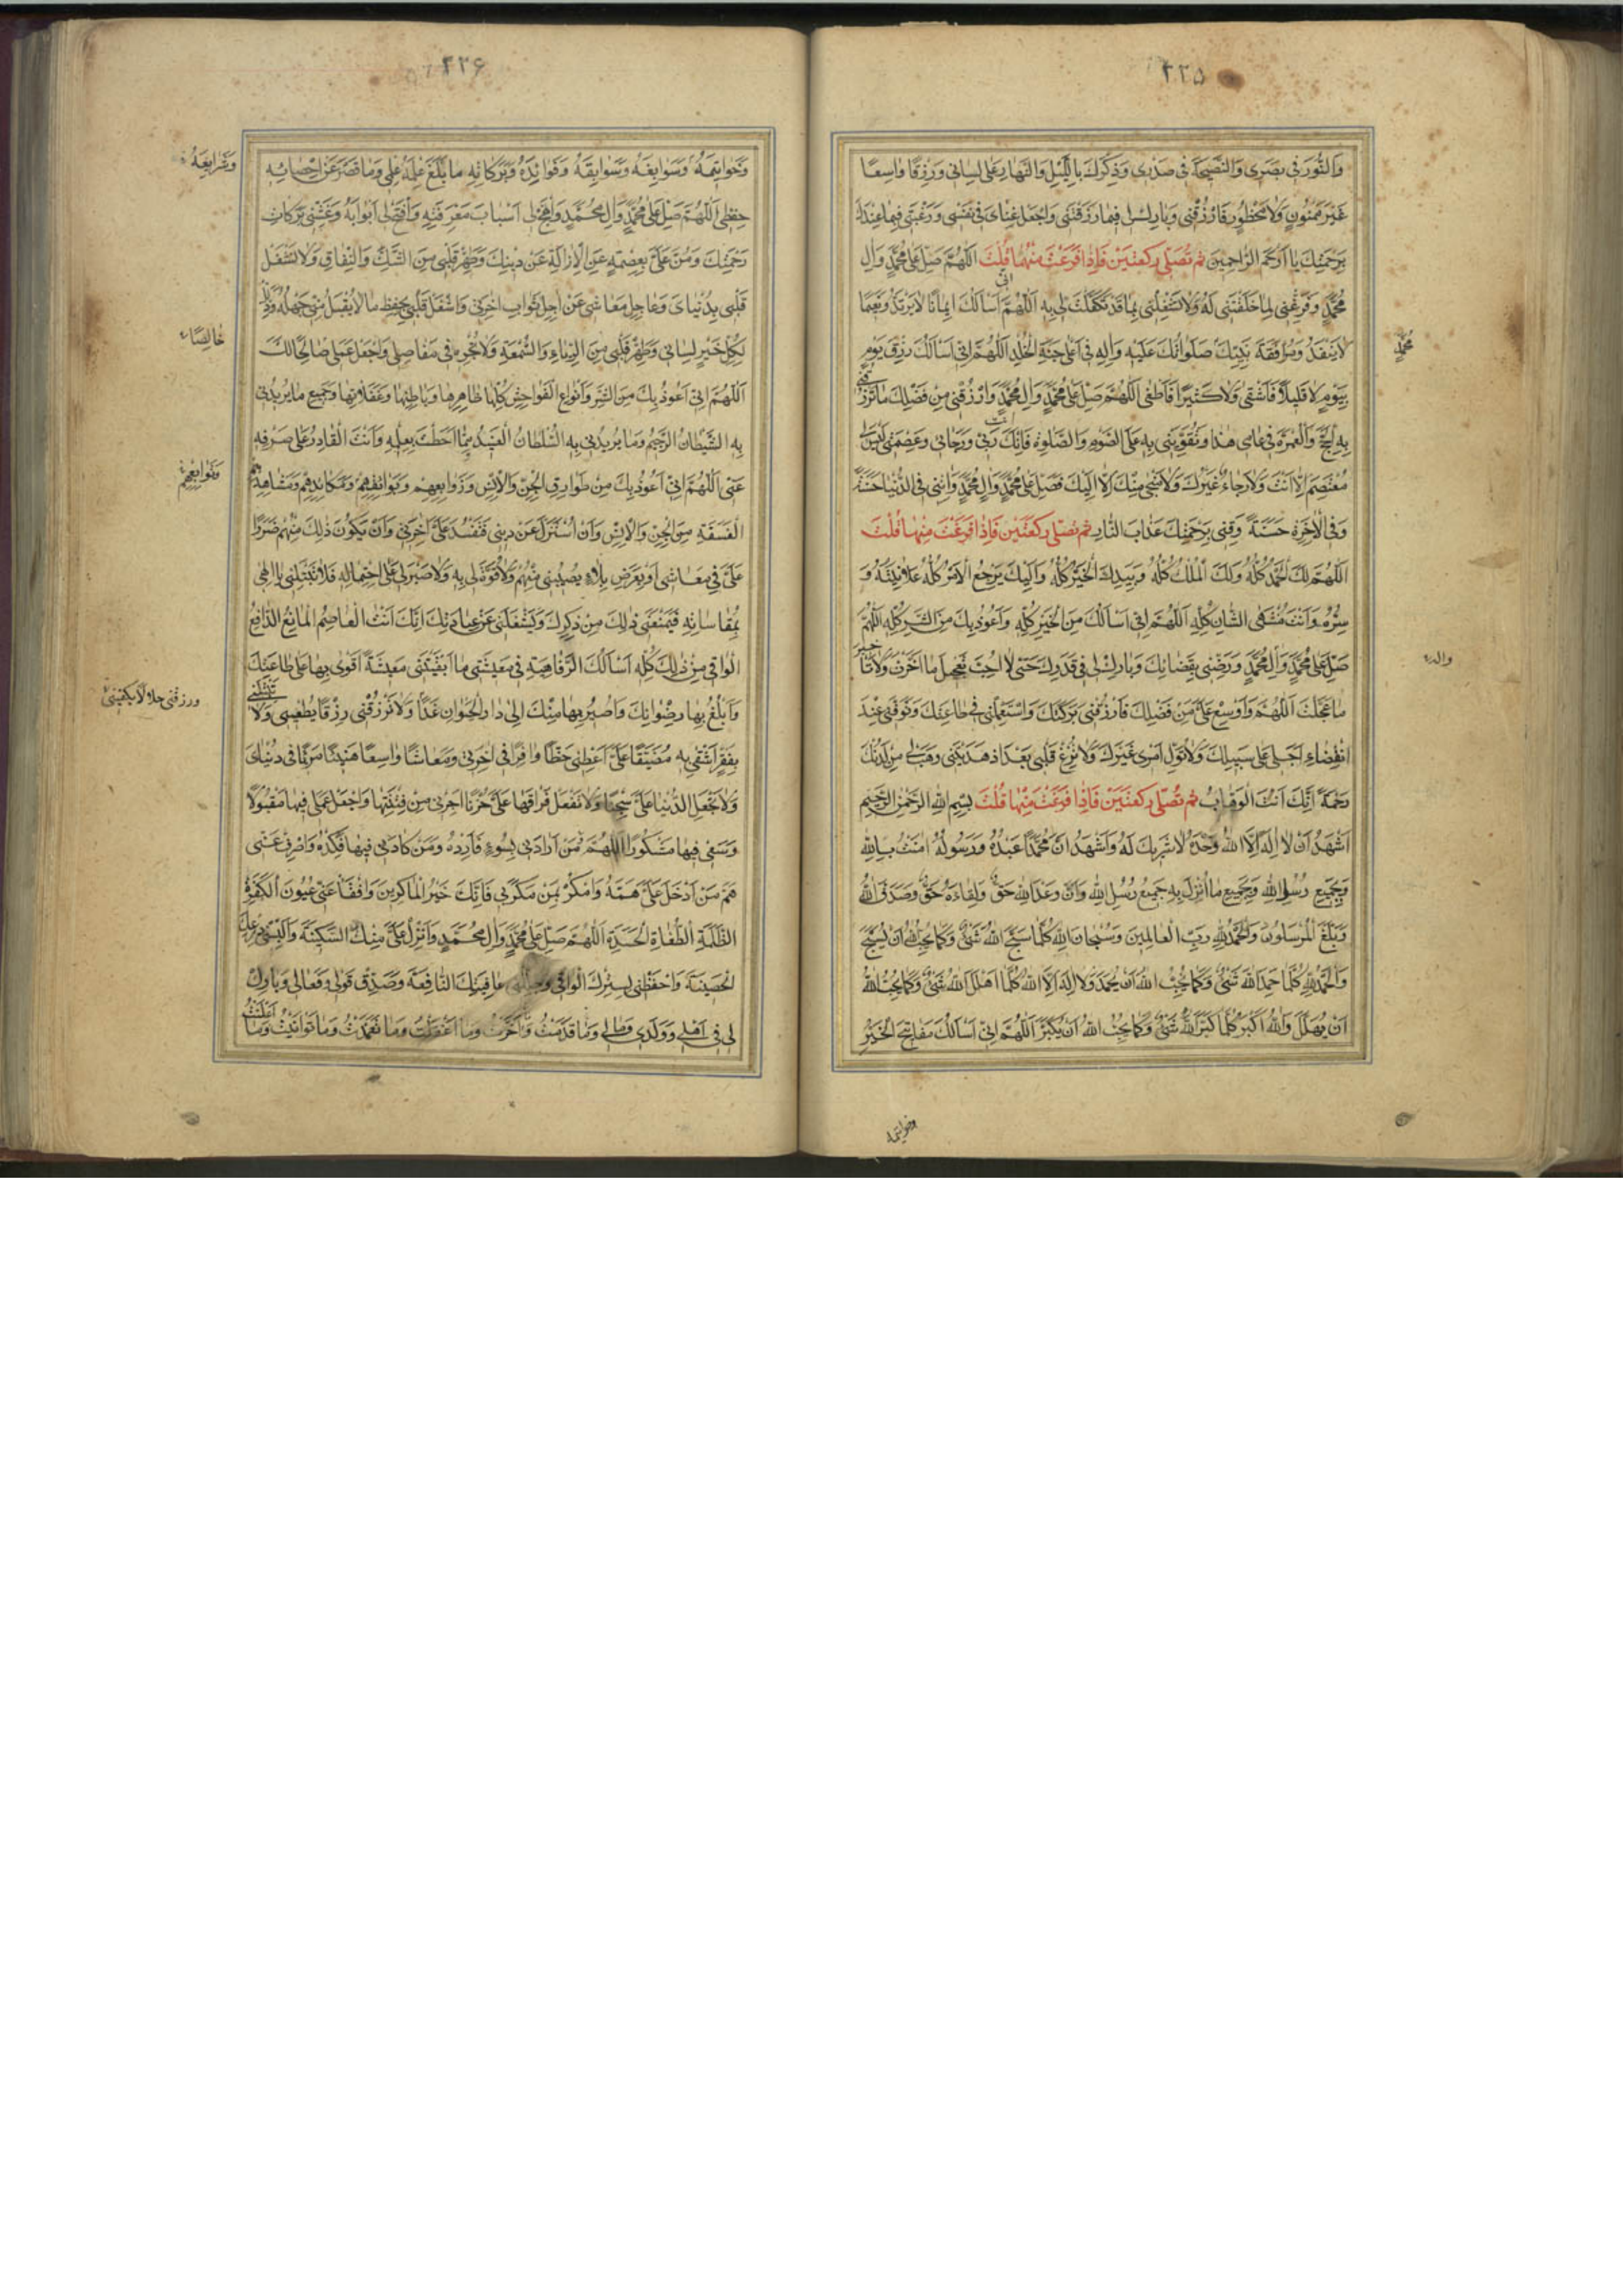 ٢٢٥
وَالنُّورَ فی بَصَری وَالنَّصیحَةَ فی صَدْری وَذِكْرَكَ بِاللَّیْلِ وَالنَّهارِ عَلی لِسانی وَرِزْقًا واسِعًا
غَیْرَ مَمْنُونٍ وَلا مَحْظُورٍ فَارْزُقْنی وَبارِكْ لی فیما رَزَقْتَنی وَاجْعَلْ غِنایَ فی نَفْسی وَرَغْبَتی فیما عِنْدَكَ
بِرَحْمَتِكَ یا اَرْحَمَ الرّاحِمینَ ثم تُصَلّی ركعتَیْن فَإِذا فَرَغْتَ مِنْهُما قُلْتَ اَللّهُمَّ صَلِّ عَلی مُحَمَّدٍ وَالِ
مُحَمَّدٍ وَفَرِّغْنی لِما خَلَقْتَنی لَهُ وَلا تَشْغَلْنی بِما قَدْ تَكَفَّلْتَ لی بِهِ اَللّهُمَّ اِنّی اَسْاَلُكَ ایمانًا لا یَرْتَدُّ وَنَعیمًا
لا یَنْفَدُ وَمُرافَقَةَ نَبِیِّكَ صَلَواتُكَ عَلَیْهِ وَالِهِ فی اَعْلی جَنَّةِ الْخُلْدِ اَللّهُمَّ اِنّی اَسْاَلُكَ رِزْقَ یَوْمٍ
مُحَمَّدٍ
بِیَوْمٍ لا قَلیلاً فَاَشْقی وَلا كَثیرًا فَاَطْغی اَللّهُمَّ صَلِّ عَلی مُحَمَّدٍ وَالِ مُحَمَّدٍ وَارْزُقْنی مِنْ فَضْلِكَ ما تَرْزُقُنی
بِهِ الْحَجَّ وَالْعُمْرَةَ فی عامی هذا وَتُقَوّینی بِهِ عَلَی الصَّوْمِ وَالصَّلوةِ فَاِنَّكَ اَنْتَ رَبّی وَرَجائی وَعِصْمَتی لَیْسَ لی
مُعْتَصَمٌ اِلاّ اَنْتَ وَلا رَجاءَ غَیْرُكَ وَلا مَنْجی مِنْكَ اِلاّ اِلَیْكَ فَصَلِّ عَلی مُحَمَّدٍ وَالِ مُحَمَّدٍ وَاتِنی فِی الدُّنْیا حَسَنَةً
وَفِی الْاخِرَةِ حَسَنَةً وَقِنی بِرَحْمَتِكَ عَذابَ النّارِ ثم تُصَلّی ركعتَیْن فَإِذا فَرَغْتَ مِنْهُما قُلْتَ
اَللّهُمَّ لَكَ الْحَمْدُ كُلُّهُ وَلَكَ الْمُلْكُ كُلُّهُ وَبِیَدِكَ الْخَیْرُ كُلُّهُ وَاِلَیْكَ یَرْجِعُ الْاَمْرُ كُلُّهُ عَلانِیَتُهُ وَ
سِرُّهُ وَاَنْتَ مُنْتَهَی الشَّانِ كُلِّهِ اَللّهُمَّ اِنّی اَسْاَلُكَ مِنَ الْخَیْرِ كُلِّهِ وَاَعُوذُ بِكَ مِنَ الشَّرِّ كُلِّهِ اَللّهُمَّ
صَلِّ عَلی مُحَمَّدٍ وَالِ مُحَمَّدٍ وَرَضِّنی بِقَضائِكَ وَبارِكْ لی فی قَدَرِكَ حَتّی لا اُحِبَّ تَعْجیلَ ما اَخَّرْتَ وَلا تَاْخیرَ
واله
ما عَجَّلْتَ اَللّهُمَّ وَاَوْسِعْ عَلَیَّ مِنْ فَضْلِكَ فَارْزُقْنی بَرَكَتَكَ وَاسْتَعْمِلْنی فی طاعَتِكَ وَتَوَفَّنی عِنْدَ
انْقِضاءِ اَجَلی عَلی سَبیلِكَ وَلا تُوَلِّ اَمْری غَیْرَكَ وَلا تُزِغْ قَلْبی بَعْدَ اِذْ هَدَیْتَنی وَهَبْ لی مِنْ لَدُنْكَ
رَحْمَةً اِنَّكَ اَنْتَ الْوَهّابُ ثم تُصَلّی ركعتَیْن فَإِذا فَرَغْتَ مِنْهُما قُلْتَ بِسْمِ اللهِ الرَّحْمنِ الرَّحیمِ
اَشْهَدُ اَنْ لا اِلهَ اِلاَّ اللهُ وَحْدَهُ لا شَریكَ لَهُ وَاَشْهَدُ اَنَّ مُحَمَّدًا عَبْدُهُ وَرَسُولُهُ امَنْتُ بِاللهِ
وَبِجَمیعِ رُسُلِ اللهِ وَبِجَمیعِ ما اُنْزِلَ بِهِ جَمیعُ رُسُلِ اللهِ وَاَنَّ وَعْدَ اللهِ حَقٌّ وَلِقاءَهُ حَقٌّ وَصَدَقَ اللهُ
وَبَلَّغَ الْمُرْسَلُونَ وَالْحَمْدُ لِلّهِ رَبِّ الْعالَمینَ وَسُبْحانَ اللهِ كُلَّما سَبَّحَ اللهَ شَیْءٌ وَكَما یُحِبُّ اللهُ اَنْ یُسَبَّحَ
وَالْحَمْدُ لِلّهِ كُلَّما حَمِدَ اللهَ شَیْءٌ وَكَما یُحِبُّ اللهُ اَنْ یُحْمَدَ وَلا اِلهَ اِلاَّ اللهُ كُلَّما هَلَّلَ اللهَ شَیْءٌ وَكَما یُحِبُّ اللهُ
اَنْ یُهَلَّلَ وَاللهُ اَكْبَرُ كُلَّما كَبَّرَ اللهَ شَیْءٌ وَكَما یُحِبُّ اللهُ اَنْ یُكَبَّرَ اَللّهُمَّ اِنّی اَسْاَلُكَ مَفاتیحَ الْخَیْرِ
وخواتیمه
٢٢۶
وَخَواتیمَهُ وَسَوابِغَهُ وَسَوابِقَهُ وَفَوائِدَهُ وَبَرَكاتِهِ ما بَلَغَ عِلْمَهُ عِلْمی وَما قَصُرَ عَنْ اِحْصائِهِ
وَشَرایِعَهُ
حِفْظی اَللّهُمَّ صَلِّ عَلی مُحَمَّدٍ وَالِ مُحَمَّدٍ وَانْهَجْ لی اَسْبابَ مَعْرِفَتِهِ وَافْتَحْ لی اَبْوابَهُ وَغَشِّنی بَرَكاتِ
رَحْمَتِكَ وَمُنَّ عَلَیَّ بِعِصْمَةٍ عَنِ الْاِزالَةِ عَنْ دینِكَ وَطَهِّرْ قَلْبی مِنَ الشَّكِّ وَالنِّفاقِ وَلا تَشْغَلْ
قَلْبی بِدُنْیایَ وَعاجِلِ مَعاشی عَنْ اجِلِ ثَوابِ اخِرَتی وَاشْغَلْ قَلْبی بِحِفْظِ ما لا یُقْبَلُ مِنّی جَهْلُهُ وَذَلِّلْ
لِكُلِّ خَیْرٍ لِسانی وَطَهِّرْ قَلْبی مِنَ الرِّیاءِ وَالسُّمْعَةِ وَلا تُجْرِهِ فی مَفاصِلی وَاجْعَلْ عَمَلی خالِصًا لَكَ
خالِصًا
اَللّهُمَّ اِنّی اَعُوذُ بِكَ مِنَ الشَّرِّ وَاَنْواعِ الْفَواحِشِ كُلِّها ظاهِرِها وَباطِنِها وَغَفَلاتِها وَجَمیعِ ما یُریدُنی
بِهِ الشَّیْطانُ الرَّجیمُ وَما یُریدُنی بِهِ السُّلْطانُ الْعَنیدُ مِمّا اَحَطْتَ بِعِلْمِهِ وَاَنْتَ الْقادِرُ عَلی صَرْفِهِ
عَنّی اَللّهُمَّ اِنّی اَعُوذُ بِكَ مِنْ طَوارِقِ الْجِنِّ وَالْاِنْسِ وَزَوابِعِهِمْ وَبَوائِقِهِمْ وَمَكائِدِهِمْ وَمَشاهِدِ
وَتَوابِعِهِمْ
الْفَسَقَةِ مِنَ الْجِنِّ وَالْاِنْسِ وَاَنْ اُسْتَزَلَّ عَنْ دینی فَتَفْسُدَ عَلَیَّ اخِرَتی وَاَنْ یَكُونَ ذلِكَ مِنْهُمْ ضَرَرًا
عَلَیَّ فی مَعاشی اَوْ یَعْرِضَ بَلاءٌ یُصیبُنی مِنْهُمْ وَلا قُوَّةَ لی بِهِ وَلا صَبْرَ لی عَلَی احْتِمالِهِ فَلا تَبْتَلِنی یا اِلهی
بِمُقاساتِهِ فَیَمْنَعَنی ذلِكَ مِنْ ذِكْرِكَ وَیَشْغَلَنی عَنْ عِبادَتِكَ اِنَّكَ اَنْتَ الْعاصِمُ الْمانِعُ الدّافِعُ
الْواقی مِنْ ذلِكَ كُلِّهِ اَسْاَلُكَ الرَّفاهِیَةَ فی مَعیشَتی ما اَبْقَیْتَنی مَعیشَةً اَقْوی بِها عَلی طاعَتِكَ
وَاَبْلُغُ بِها رِضْوانَكَ وَاَصیرُ بِها مِنْكَ اِلی دارِ الْحَیَوانِ غَدًا وَلا تَرْزُقْنی رِزْقًا یُطْغینی وَلا تَبْتَلِنی
ورزقنی حلالا یكفینی
بِفَقْرٍ اَشْقی بِهِ مُضَیَّقًا عَلَیَّ اَعْطِنی حَظًّا وافِرًا فی اخِرَتی وَمَعاشًا واسِعًا هَنیئًا مَریئًا فی دُنْیایَ
وَلا تَجْعَلِ الدُّنْیا عَلَیَّ سِجْنًا وَلا تَجْعَلْ فِراقَها عَلَیَّ حُزْنًا اَجِرْنی مِنْ فِتْنَتِها وَاجْعَلْ عَمَلی فیها مَقْبُولاً
وَسَعْیی فیها مَشْكُورًا اَللّهُمَّ مَنْ اَرادَنی بِسُوءٍ فَاَرِدْهُ وَمَنْ كادَنی فیها فَكِدْهُ وَاصْرِفْ عَنّی
هَمَّ مَنْ اَدْخَلَ عَلَیَّ هَمَّهُ وَامْكُرْ بِمَنْ مَكَرَ بی فَاِنَّكَ خَیْرُ الْماكِرینَ وَافْقَأْ عَنّی عُیُونَ الْكَفَرَةِ
الظَّلَمَةِ الطُّغاةِ الْحَسَدَةِ اَللّهُمَّ صَلِّ عَلی مُحَمَّدٍ وَالِ مُحَمَّدٍ وَاَنْزِلْ عَلَیَّ مِنْكَ السَّكینَةَ وَاَلْبِسْنی دِرْعَكَ
الْحَصینَةَ وَاحْفَظْنی بِسِتْرِكَ الْواقی عافِیَتَكَ النّافِعَةَ وَصَدِّقْ قَوْلی وَفَعالی وَبارِكْ
لی فی اَهْلی وَوَلَدی وَمالی وَما قَدَّمْتُ وَاَخَّرْتُ وَما اَغْفَلْتُ وَما تَعَمَّدْتُ وَما تَوانَیْتُ وَما اَعْلَنْتُ